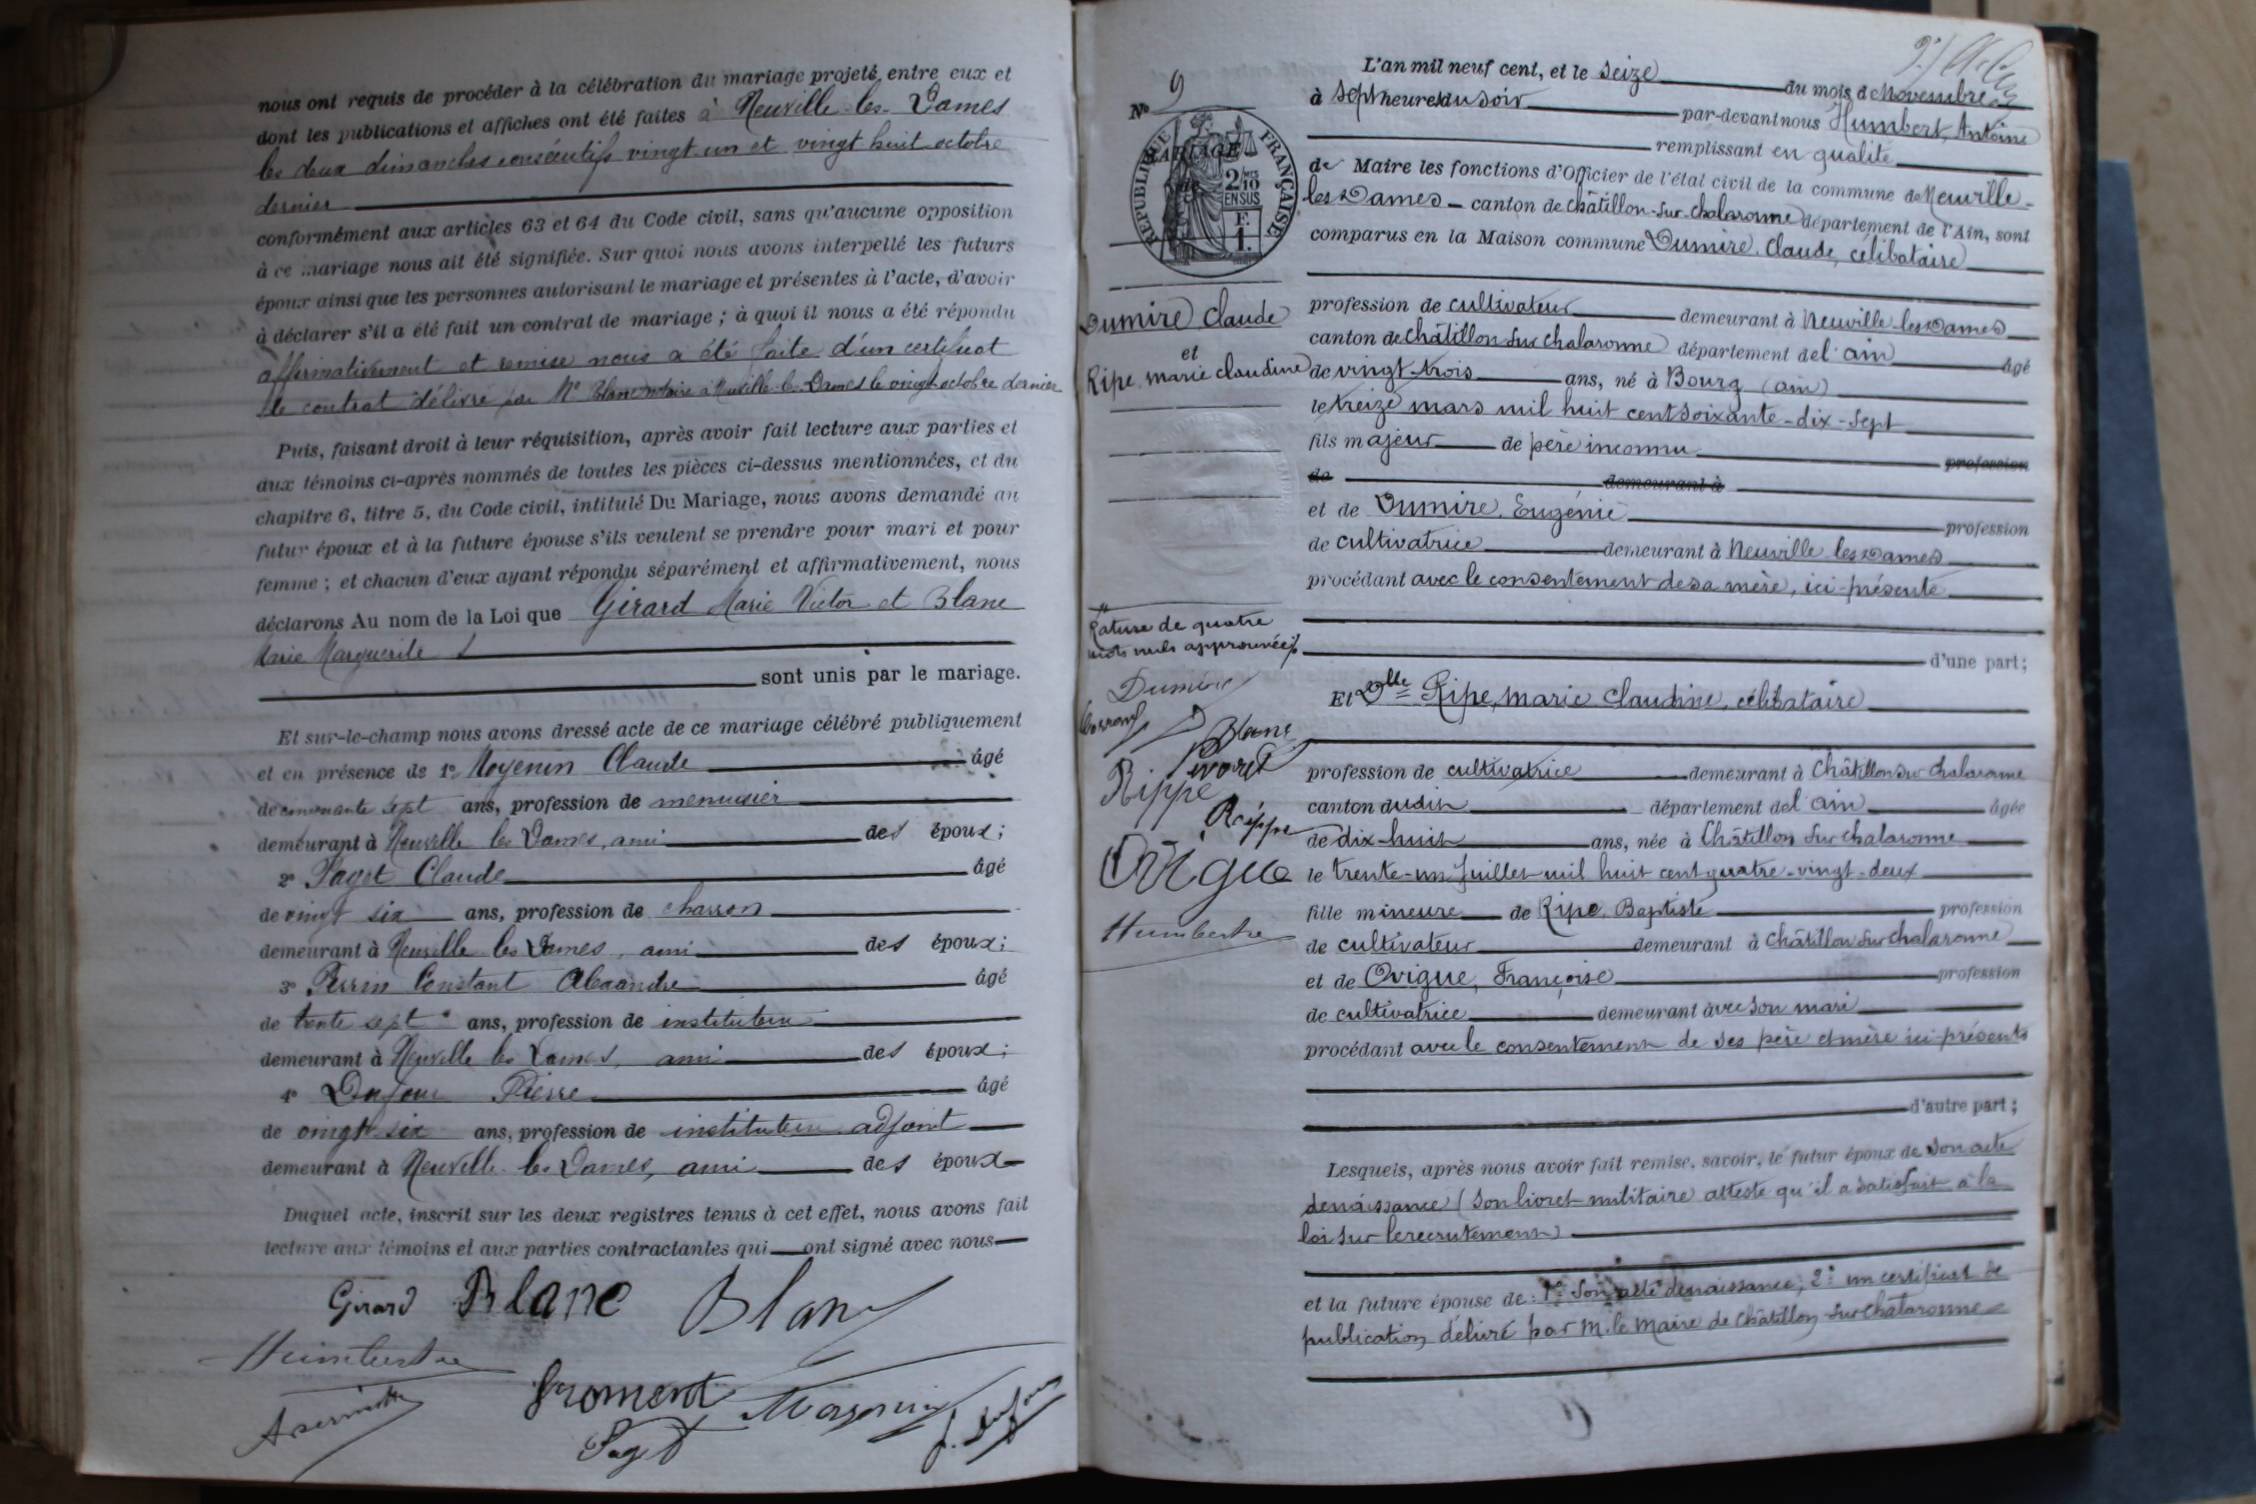 nous ont requis de procéder à la célébration du mariage projeté entre eux et
dont les publications et affiches ont été faites à Neuville-les-Dames
les deux dimanches consécutifs vingt-un et vingt huit octobre
dernier
conformément aux articles 63 et 64 du Code civil, sans qu'aucune opposition
à ce mariage nous ait été signifiée. Sur quoi nous avons interpellé les futurs
époux ainsi que les personnes autorisant le mariage et présentes à l'acte, d'avoir
à déclarer s'il a été fait un contrat de mariage ; à quoi il nous a été répondu
affirmativement et remise nous a été faite d'un certificat
de contrat délivré par Me Blanc notaire à Neuville-les-Dames le vingt octobre dernier
Puis, faisant droit à leur réquisition, après avoir fait lecture aux parties et
aux témoins ci-après nommés de toutes les pièces ci-dessus mentionnées, et du
chapitre 6, titre 5, du Code civil, intitulé Du Mariage, nous avons demandé au
futur époux et à la future épouse s'ils veulent se prendre pour mari et pour
femme ; et chacun d'eux ayant répondu séparément et affirmativement, nous
déclarons Au nom de la Loi que Girard Marie Victor et Blanc
Marie Marguerite
sont unis par le mariage.
Et sur-le-champ nous avons dressé acte de ce mariage célébré publiquement
et en présence de 1° Moyenin Claude âgé
de cinquante sept ans, profession de menuisier
demeurant à Neuville les Dames, ami des époux ;
2° Paget Claude âgé
de vingt six ans, profession de charron
demeurant à Neuville les Dames, ami des époux ;
3° Perrin Constant Alexandre âgé
de trente sept ans, profession de instituteur
demeurant à Neuville les Dames, ami des époux ;
4° Dufour Pierre âgé
de vingt-six ans, profession de instituteur adjoint
demeurant à Neuville-les-Dames, ami des époux
Duquel acte, inscrit sur les deux registres tenus à cet effet, nous avons fait
lecture aux témoins et aux parties contractantes qui ont signé avec nous
Girard Blanc Blanc
froment
Paget
N° 9
RÉPUBLIQUE FRANÇAISE
MARIAGE
de
2/10
EN SUS
F.
1.
Dumire Claude
et
Ripe, marie claudine
Rature de quatre
mots nuls approuvée
Dumire
Blanc
Pivoret
Rippe
Rippe
Ovigue
L'an mil neuf cent, et le seize du mois de Novembre
à sept heures du soir par-devant nous Humbert, Antoine
remplissant en qualité
de Maire les fonctions d'Officier de l'état civil de la commune de Neuville-
les Dames - canton de Châtillon-sur-Chalaronne département de l'Ain, sont
comparus en la Maison commune Dumire, Claude, célibataire
profession de cultivateur demeurant à Neuville-les Dames
canton de Châtillon sur chalaronne département de l'ain âgé
de vingt-trois ans, né à Bourg (ain)
le treize mars mil huit cent soixante-dix-sept
fils majeur de père inconnu profession
de demeurant à
et de Dumire, Eugénie profession
de cultivatrice demeurant à Neuville les Dames
procédant avec le consentement de sa mère, ici-présente
d'une part ;
Et Dlle Ripe, marie claudine, célibataire
profession de cultivatrice demeurant à Châtillon sur chalaronne
canton dudit département de l'ain âgée
de dix-huit ans, née à Châtillon sur chalaronne
le trente-un juillet mil huit cent quatre-vingt-deux
fille mineure de Ripe, Baptiste profession
de cultivateur demeurant à Châtillon sur chalaronne
et de Ovigue, Françoise profession
de cultivatrice demeurant avec son mari
procédant avec le consentement de ses père et mère ici-présents
d'autre part ;
Lesquels, après nous avoir fait remise, savoir, le futur époux de son acte
de naissance (son livret militaire atteste qu'il a satisfait à la
loi sur le recrutement)
et la future épouse de : 1° son acte de naissance ; 2° un certificat de
publication délivré par m. le maire de Châtillon-sur-Chalaronne